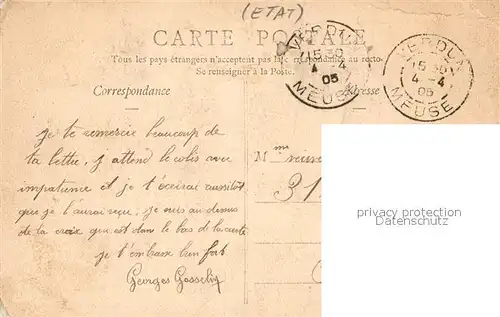 (ETAT)
CARTE POSTALE
Tous les pays étrangers n'acceptent pas la correspondance au recto
Se renseigner à la Poste.
VERDUN
15 30
4-4
05
MEUSE
VERDUN
15 30
4-4
05
MEUSE
Correspondance
Adresse
je te remercie beaucoup de
ta lettre, j attend le colis avec
impatience et je t'écrirai aussitôt
que je l'aurai reçu, je suis au dessus
de la croix qui est dans le bas de la carte
je t'embrasse bien fort
Georges Gosselin
Mme
31
privacy protection
Datenschutz